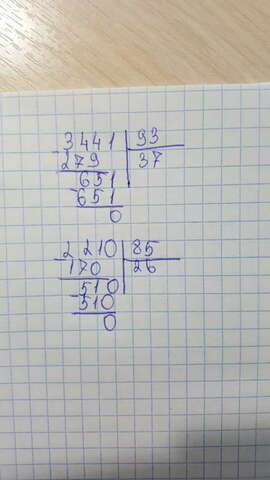 3441 93
-279 37
-651
651
0
2210 85
-170 26
-510
510
0